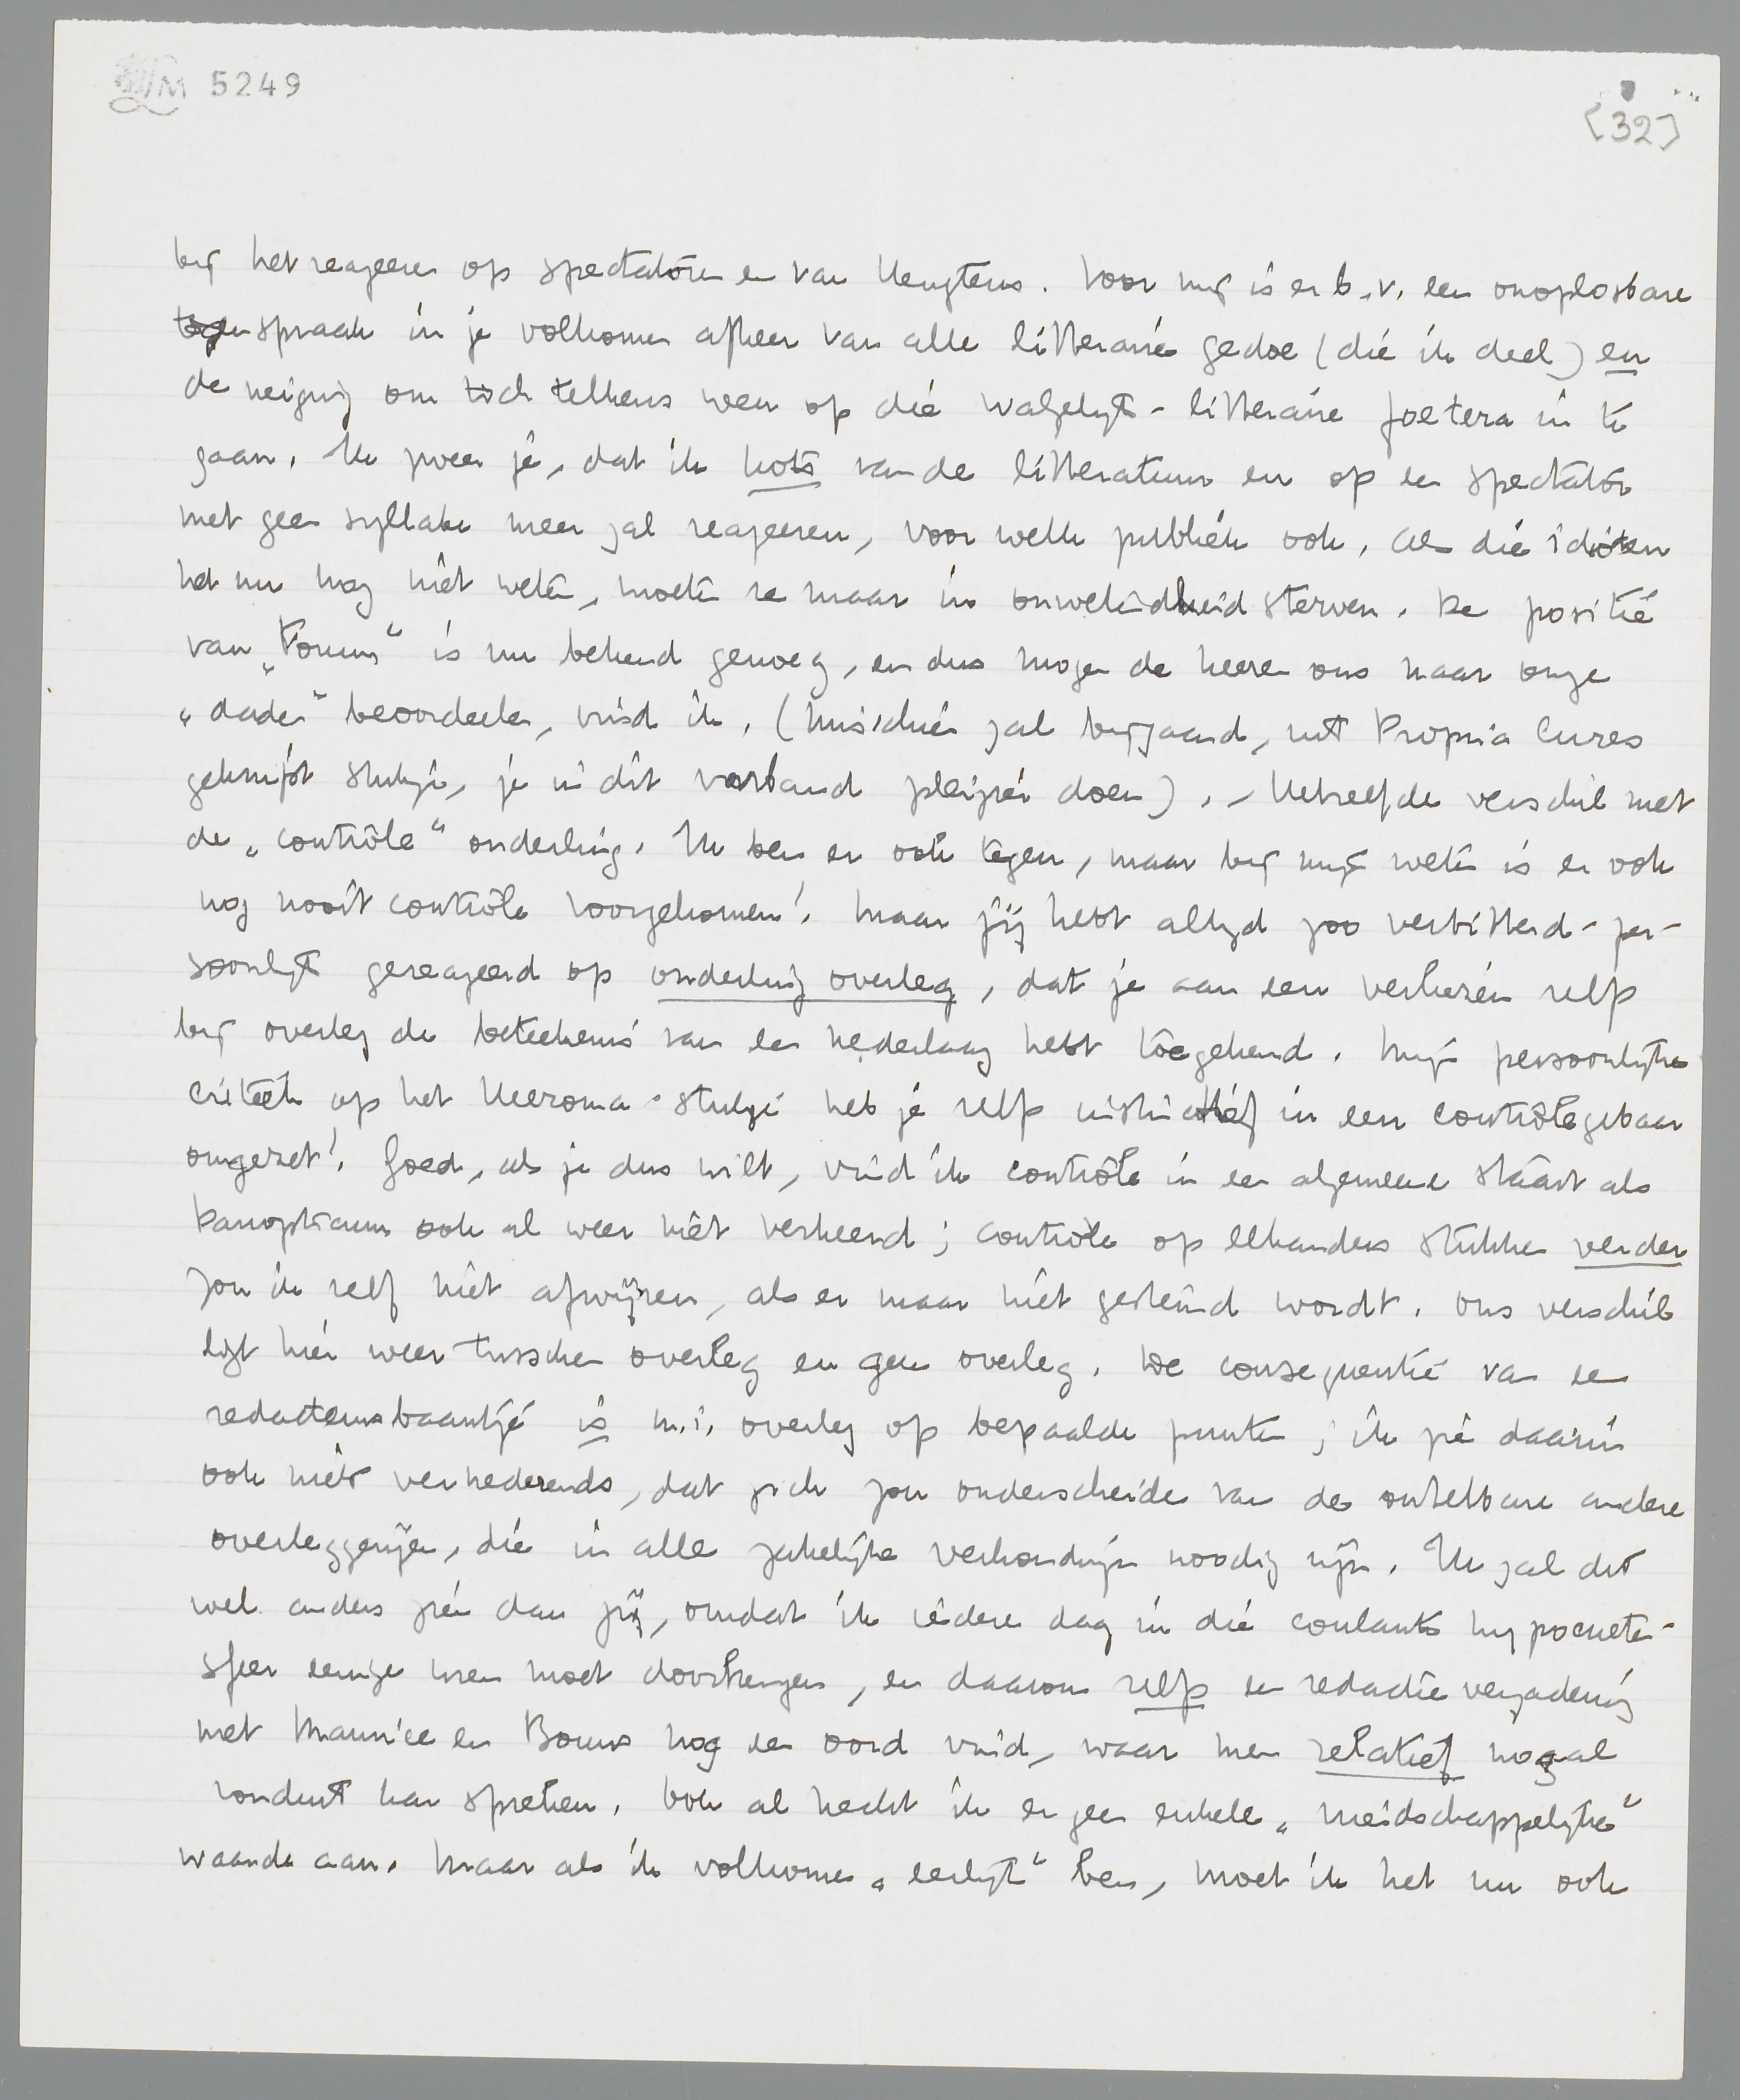 LM 5249
[32]
bij het reageeren op spectatoren en van Heugtens. Voor mij is er b.v. een onoplosbare
tegenspraak in je volkomen afkeer van alle litteraire gedoe (die ik deel) en
de neiging om toch telkens weer op die walgelijk-litteraire foetera in te
gaan. Ik zweer je, dat ik kots van de litteratuur en op een spectator
met geen syllabe meer zal reageeren, voor welk publiek ook. Als die idioten
het nu nog niet weten, moeten ze maar in onwetendheid sterven. De positie
van „Forum" is nu bekend genoeg, en dus mogen de heeren ons naar onze
„daden" beoordeelen, vind ik. (Misschien zal bijgaand, uit Propria Cures
geknipt stukje, je in dit verband plezier doen). – Hetzelfde verschil met
de „contrôle" onderling. Ik ben er ook tegen, maar bij mijn weten is er ook
nog nooit contrôle voorgekomen! Maar jij hebt altijd zoo verbitterd-per-
soonlijk gereageerd op onderling overleg, dat je aan een verliezen zelfs
bij overleg de beteekenis van een nederlaag hebt toegekend. Mijn persoonlijke
critiek op het Heeroma-stukje heb je zelfs instinctief in een contrôlegebaar
omgezet! Goed, als je dus wilt, vind ik contrôle in een algemeene staart als
Panopticum ook al weer niet verkeerd; contrôle op elkanders stukken verder
zou ik zelf niet afwijzen, als er maar niet gesteund wordt. Ons verschil
ligt hier weer tusschen overleg en geen overleg. De consequentie van een
redacteursbaantje is m.i. overleg op bepaalde punten; ik zie daarin
ook niets vernederends, dat zich zou onderscheiden van de ontelbare andere
overleggerijen, die in alle zakelijke verhoudingen noodig zijn. Ik zal dit
wel anders zien dan jij, omdat ik iedere dag in die coulante hypocrieten-
sfeer eenige uren moet doorbrengen, en daarom zelfs een redactievergadering
met Maurice en Bouws nog een oord vind, waar men relatief nogal
ronduit kan spreken. Ook al hecht ik er geen enkele „vriendschappelijke"
waarde aan. Maar als ik volkomen „eerlijk" ben, moet ik het nu ook